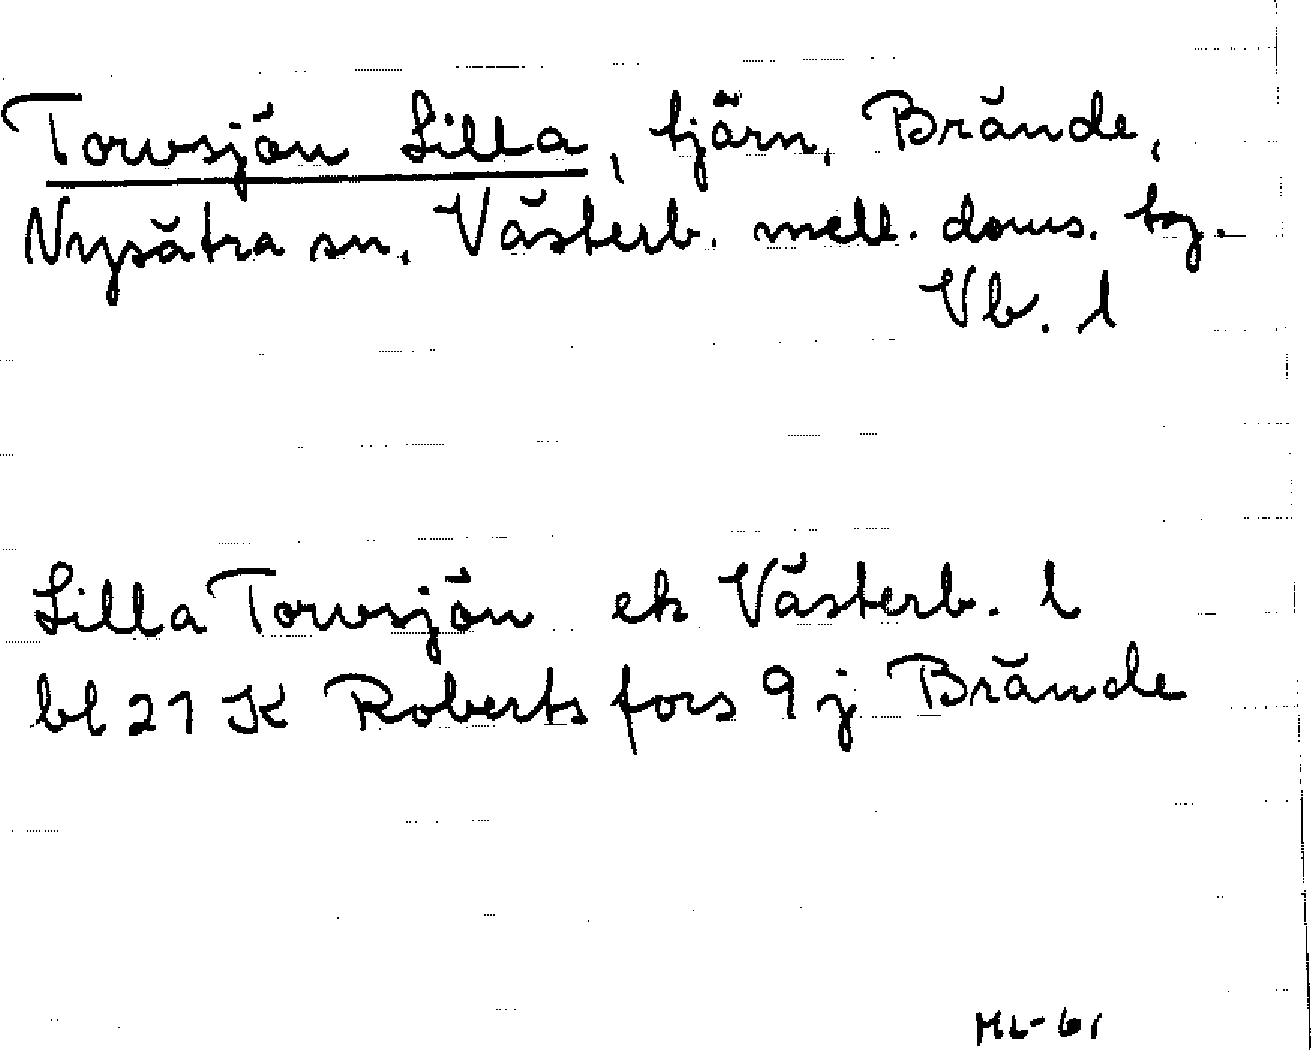 Torvsjön Lilla, tjärn, Brände,
Nysätra sn, Västerb. mell. doms. tg.
Vb. l
Lilla Torvsjön ek Västerb. l
bl 21 K Robertsfors 9 j Brände
ML-61